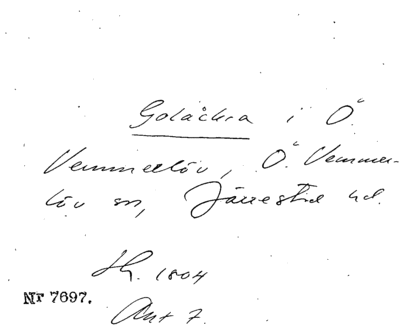 Golåkra i Ö.
Vemmerlöv, Ö. Vemmer-
löv sn, Järrestad hd.
Sk. 1804
Nr 7697.
Akt 7.